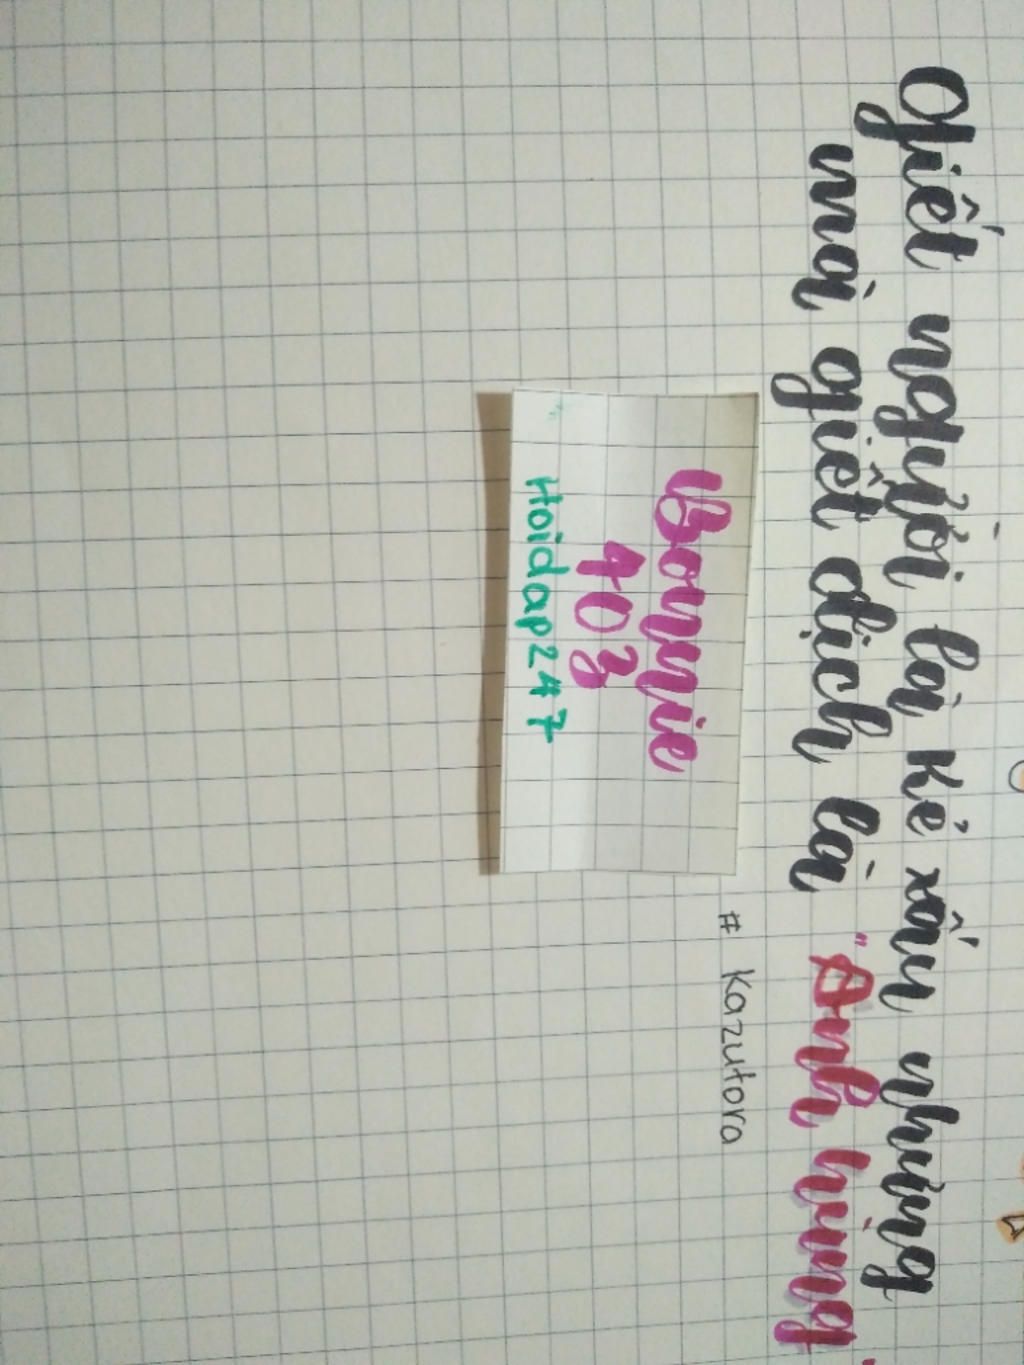 Giết người là kẻ xấu nhưng
mà giết địch là "Anh hùng"
# Kazutora
Bonnie
403
Hoidap247